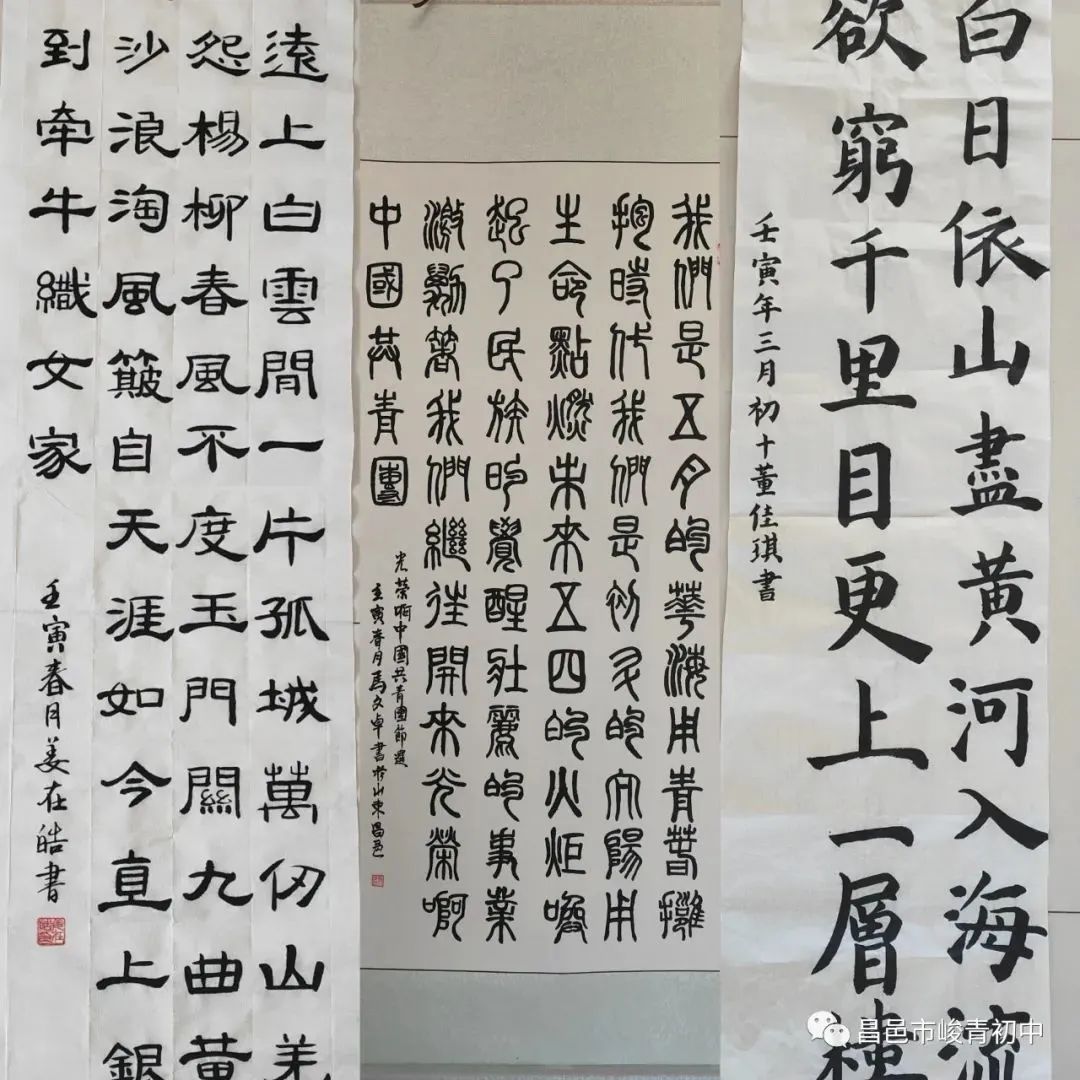 白日依山盡黃河入海流
欲窮千里目更上一層樓
壬寅年三月初十董佳琪書
我們是五月的華海用青春擁
抱時代我們是初升的太陽用
生命點燃未來五四的火炬喚
起了民族的覺醒壯麗的事業
激勵著我們繼往開來光榮啊
中國共青團
光榮啊中國共青團節選
壬寅春月馬文卓書於山東昌邑
遠上白雲間一片孤城萬仞山羌
怨楊柳春風不度玉門關九曲黃
沙浪淘風簸自天涯如今直上銀
到牽牛織女家
壬寅春月姜在皓書
昌邑市峻青初中